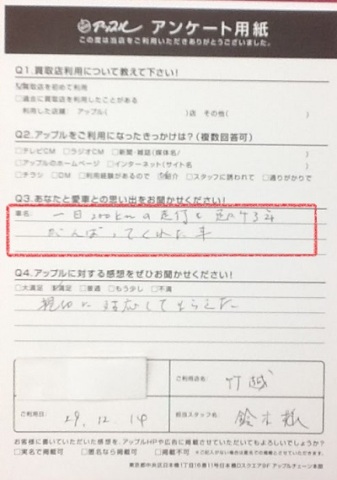 アップル アンケート用紙
この度は当店をご利用いただきありがとうございました。
Q1.買取店利用について教えて下さい!
買取店を初めて利用
□過去に買取店を利用したことがある
利用した店舗 アップル( )店 その他( )
Q2.アップルをご利用になったきっかけは?(複数回答可)
□テレビCM □ラジオCM □新聞・雑誌(媒体名/ )
□アップルのホームページ □インターネット(サイト名 )
□チラシ □DM □利用経験があるので 紹介 □スタッフに誘われて □通りがかりで
Q3.あなたと愛車との思い出をお聞かせください!
車名: 一日200kmの走行を
がんばってくれた車
Q4.アップルに対する感想をぜひお聞かせください!
□大満足 満足 □普通 □もう少し □不満
親切に対応してもらえた
ご利用店名: 竹越
ご利用日: 29.12.14
担当スタッフ名: 鈴木様
お客様に書いていただいた感想を、アップルHPや広告に掲載させていただいてもよろしいでしょうか?
□実名で掲載可 □匿名なら掲載可 □掲載不可
東京都中央区日本橋1丁目16番11号日本橋Dスクエア5F アップルチェーン本部